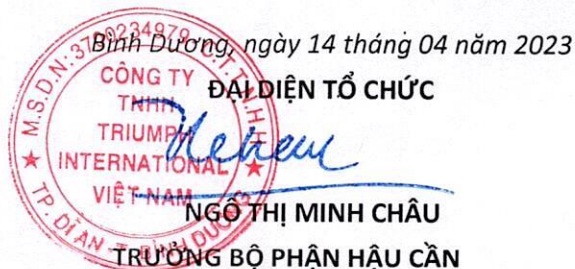 Bình Dương, ngày 14 tháng 04 năm 2023
ĐẠI DIỆN TỔ CHỨC
M.S.D.N: 3700234979 - C.T.T.N.H.H
CÔNG TY
TNHH
TRIUMPH
INTERNATIONAL
VIỆT NAM
TP. DĨ AN - T. BÌNH DƯƠNG
NGÔ THỊ MINH CHÂU
TRƯỞNG BỘ PHẬN HẬU CẦN